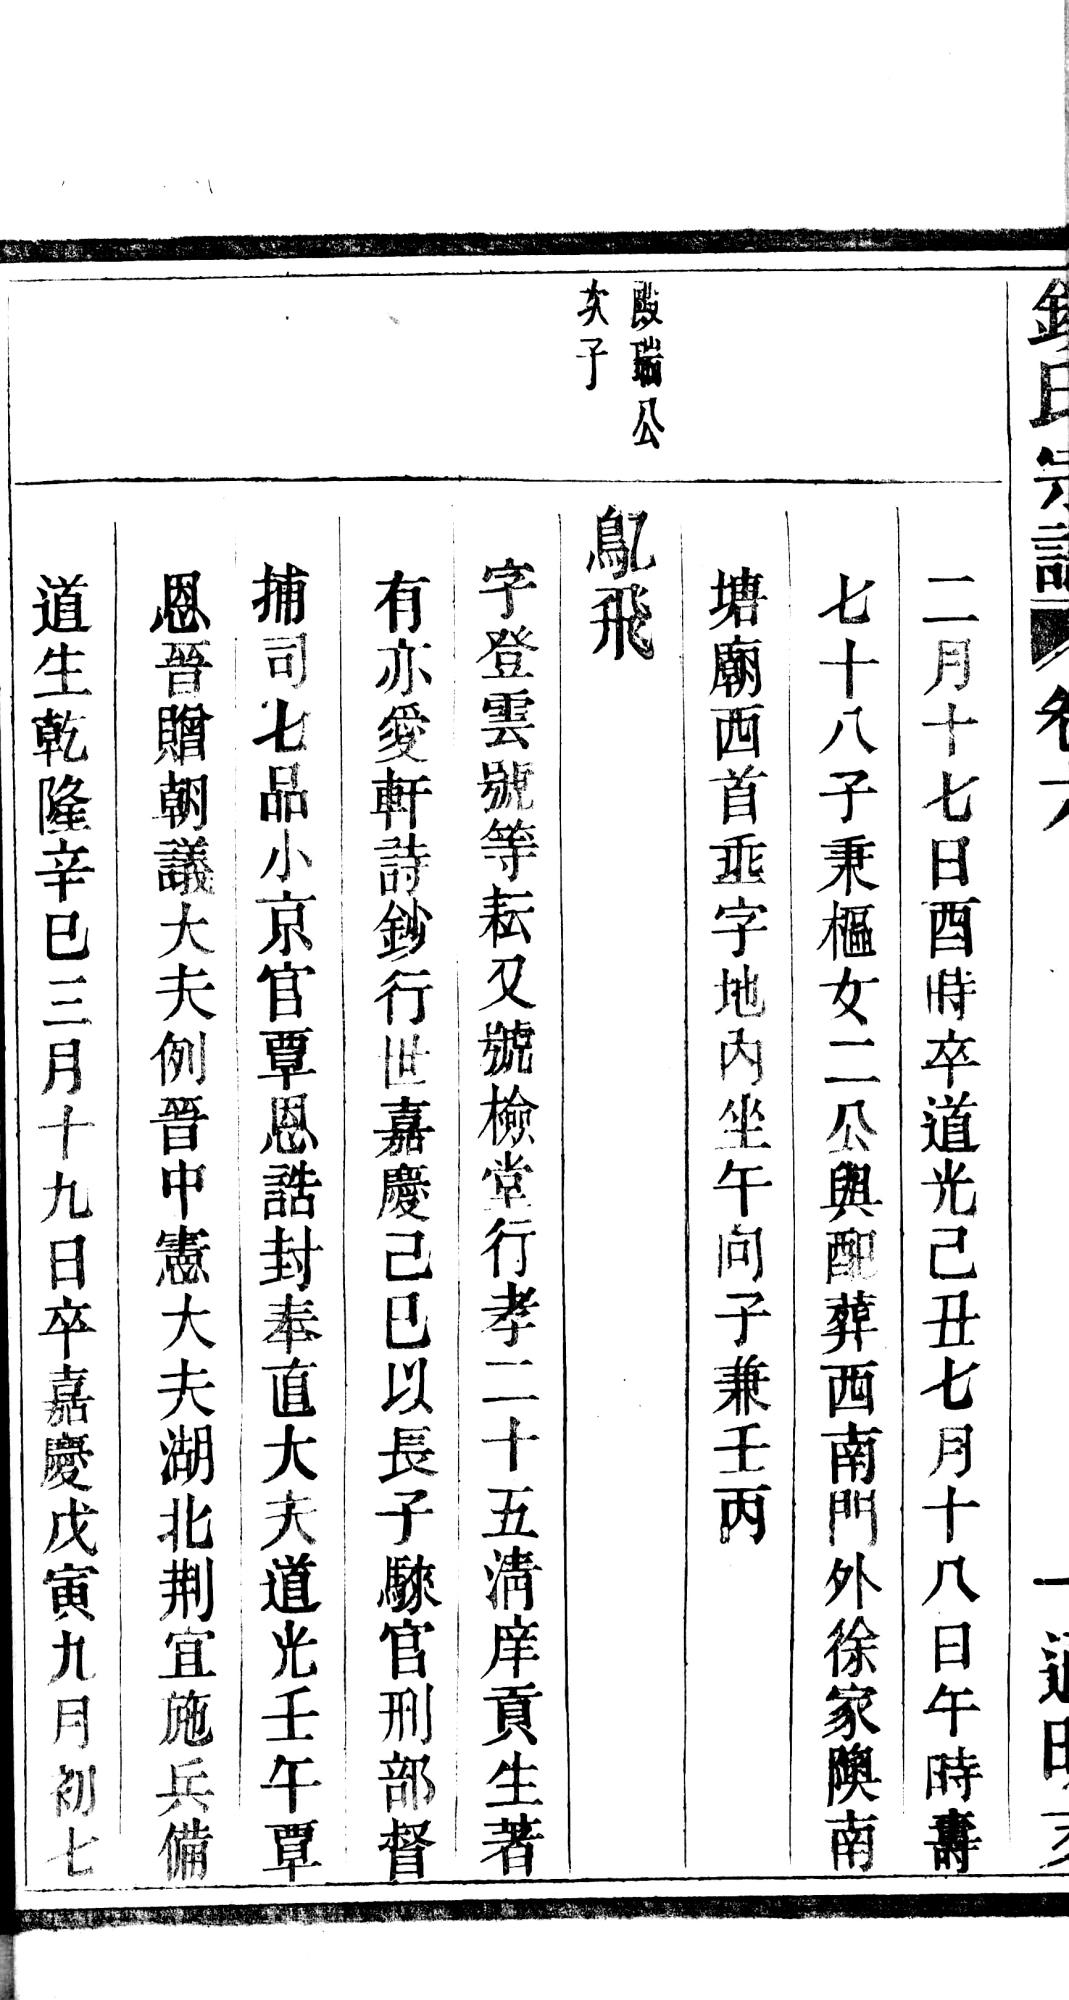 氏宗譜 卷六
二月十七日酉時卒道光己丑七月十八日午時壽
七十八子秉樞女二公與配葬西南門外徐家隩南
塘廟西首乖字地內坐午向子兼壬丙
殿瑞公
次子
鳦飛
字登雲號等耘又號檢堂行孝二十五清庠貢生著
有亦愛軒詩鈔行世嘉慶己巳以長子騋官刑部督
捕司七品小京官覃恩誥封奉直大夫道光壬午覃
恩晉贈朝議大夫例晉中憲大夫湖北荆宜施兵備
道生乾隆辛巳三月十九日卒嘉慶戊寅九月初七